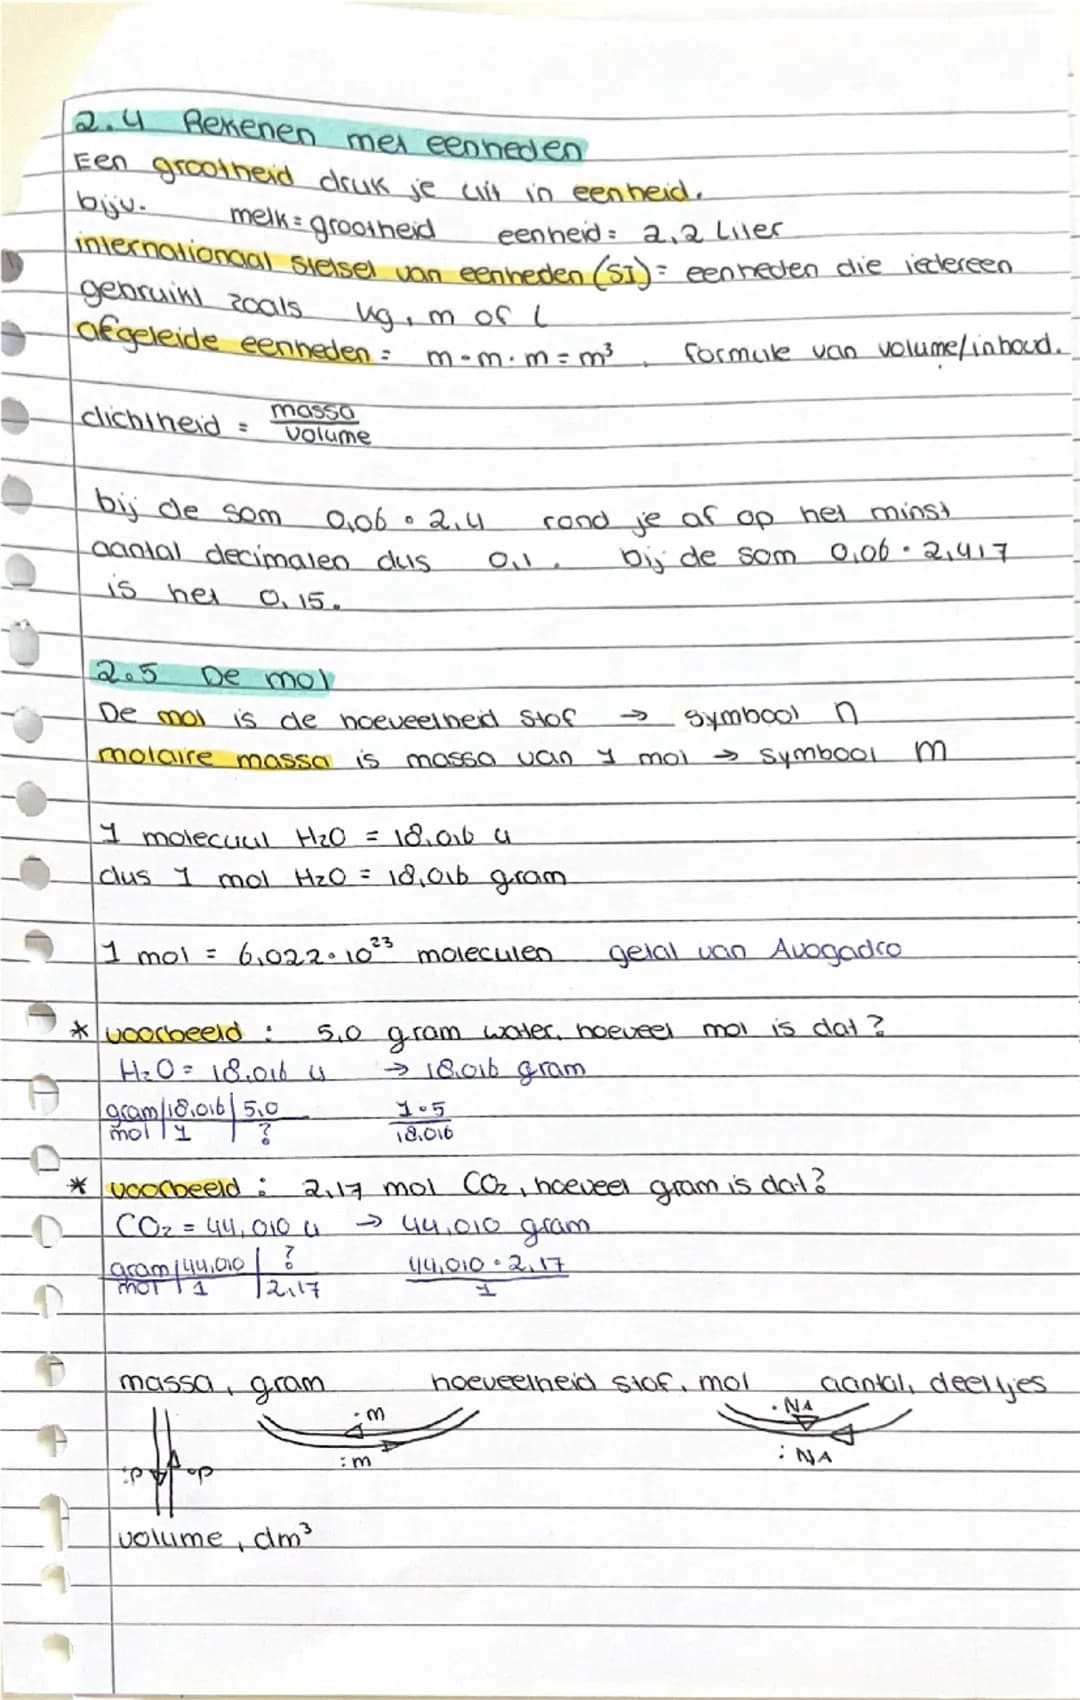 2.4 Rekenen met eenheden
Een grootheid druk je uit in eenheid.
bijv. melk = grootheid eenheid = 2,2 Liter
internationaal stelsel van eenheden (SI) = eenheden die iedereen
gebruikt zoals kg, m of l
afgeleide eenheden = m · m · m = m³, formule van volume/inhoud.
dichtheid = massa / volume
bij de som 0,06 · 2,4 rond je af op het minst
aantal decimalen dus 0,1. bij de som 0,06 · 2,417
is het 0,15.
2.5 De mol
De mol is de hoeveelheid stof → symbool n
molaire massa is massa van 1 mol → symbool m
1 molecuul H₂O = 18,016 u
dus 1 mol H₂O = 18,016 gram
1 mol = 6,022 · 10²³ moleculen getal van Avogadro
* voorbeeld : 5,0 gram water, hoeveel mol is dat?
H₂O = 18,016 u → 18,016 gram
gram | 18,016 | 5,0 1 · 5
mol | 1 | ? 18,016
* voorbeeld : 2,17 mol CO₂, hoeveel gram is dat?
CO₂ = 44,010 u → 44,010 gram
gram | 44,010 | ? 44,010 · 2,17
mol | 1 | 2,17 1
massa, gram hoeveelheid stof, mol aantal, deeltjes
· m · NA
: m : NA
: p · p
volume, dm³